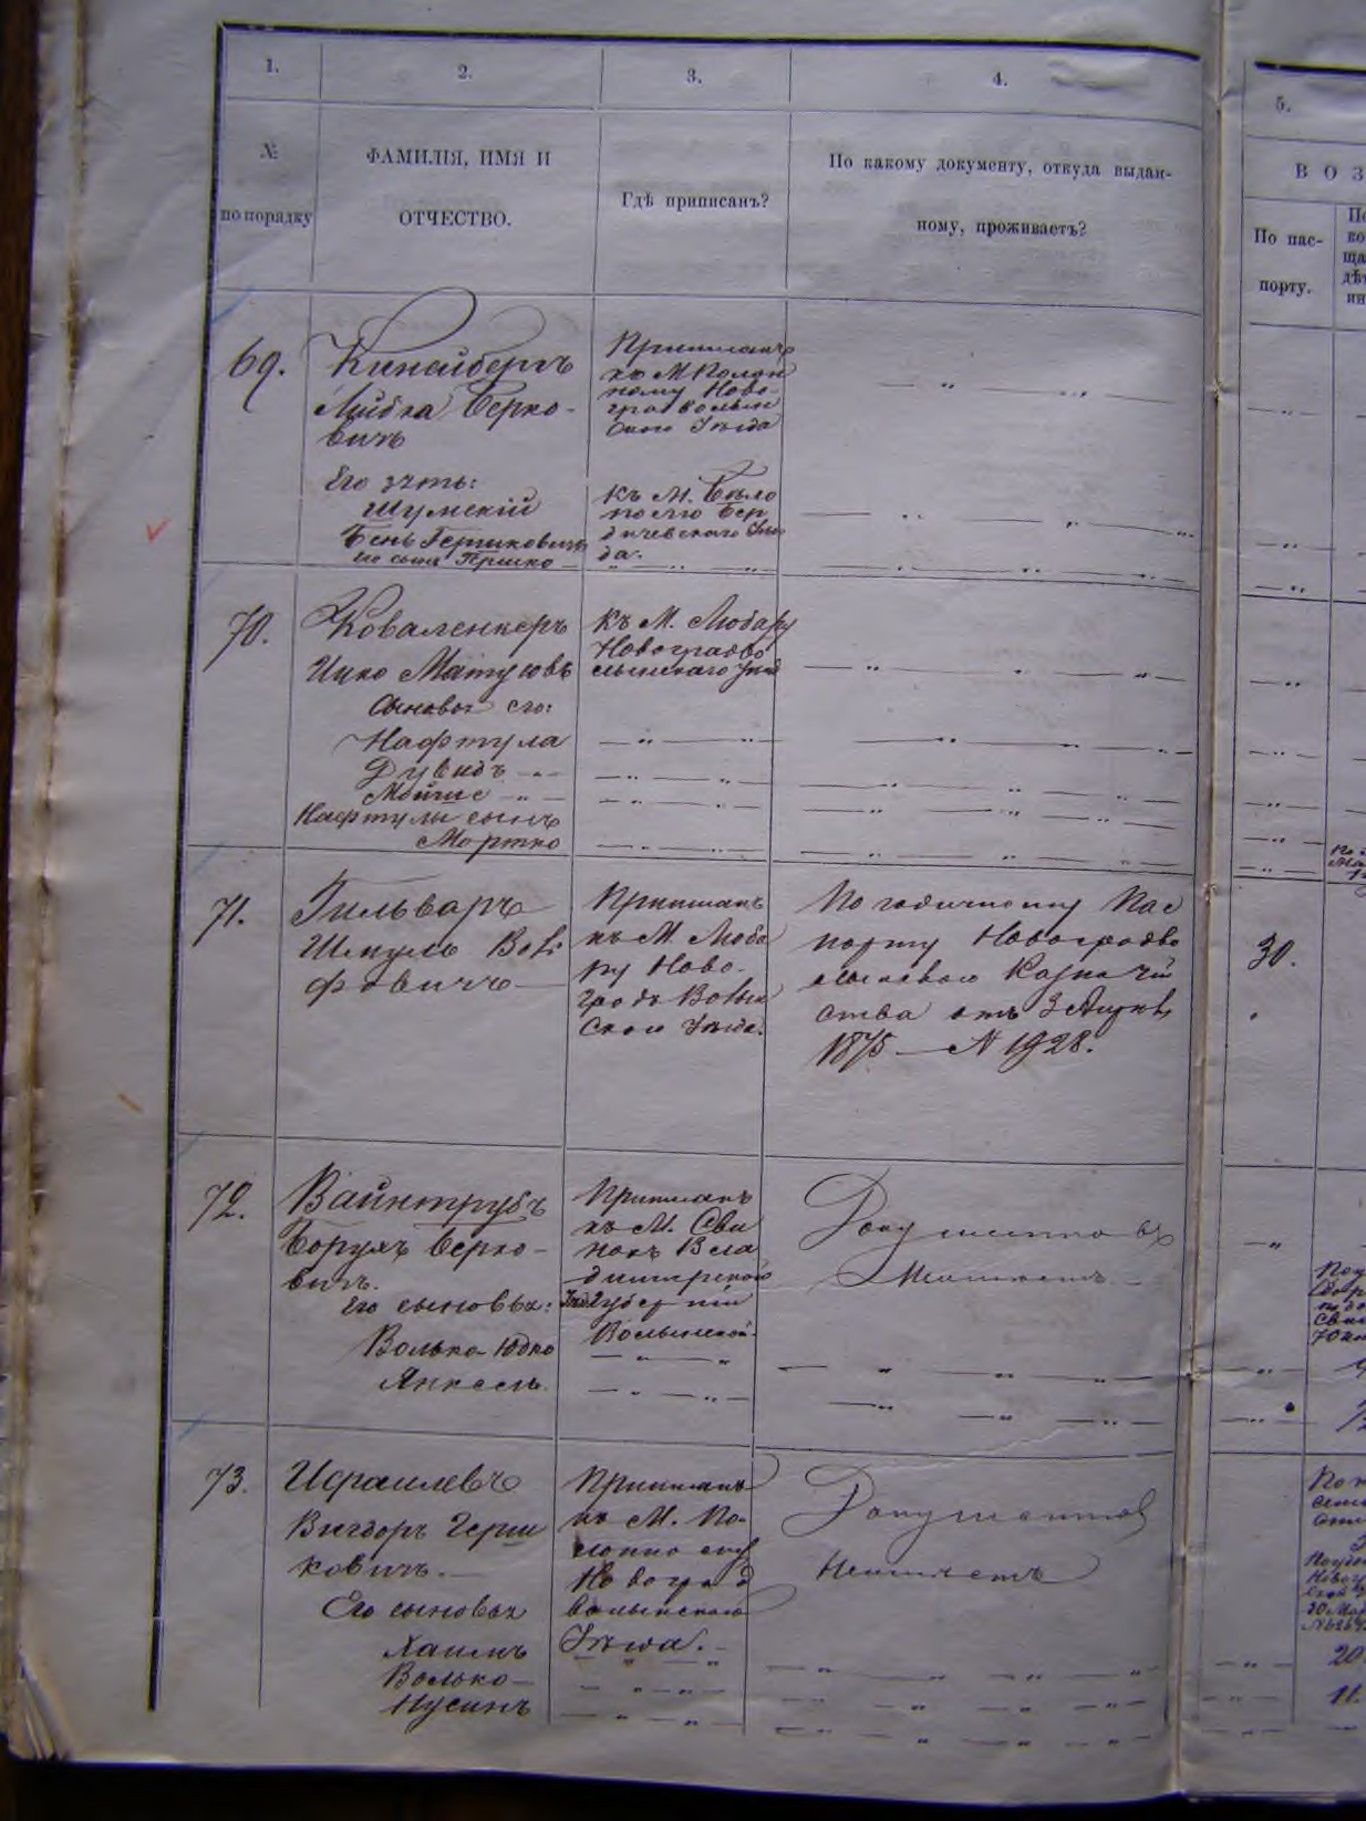 1.
2.
3.
4.
5.
№
по порядку
ФАМИЛІЯ, ИМЯ И
ОТЧЕСТВО.
Гдѣ приписанъ?
По какому документу, откуда выдан-
ному, проживаетъ?
В О З
По пас-
порту.
69.
Лейбка Берко-
вичъ
Приписанъ
къ М
ному Ново-
градволын
скаго Уѣзда
Его зять:
Шумскій
Бень Гершковичъ
его сынъ Гершко
къ М. Бѣло
полю Бер
дичевскаго Уѣз
да.
70.
Коваленкеръ
Ицко Матусовъ
Сыновья его:
Нафтула
Дувидъ
Мойше
Нафтулы сынъ
Мортко
къ М. Любару
Новоградво
лынскаго Уѣзд
71.
Гильваръ
Шмуль Воль
фовичъ
Приписанъ
къ М. Люба
ру Ново-
градъ Волын
скаго Уѣзда.
По годичному Пас
порту Новоградво
лынскаго Казначей
ства отъ 3
1875 — N 1928.
30.
72.
Вайнтрубъ
Борухъ Берко-
вичъ.
Его сыновья:
Волько-Юдко
Янкель.
Приписанъ
къ М.
Вла
димірскаго
Уѣзд Губерніи
Волынской.
Документовъ
Неимѣетъ
73.
Израилевъ
Вигдоръ Герш
ковичъ.
Его сыновья
Хаимъ
Волько
Нусинъ
Приписанъ
къ М. По-
лонному
Новоград
волынскаго
Уѣзда.
Документовъ
Неимѣетъ
20
11.